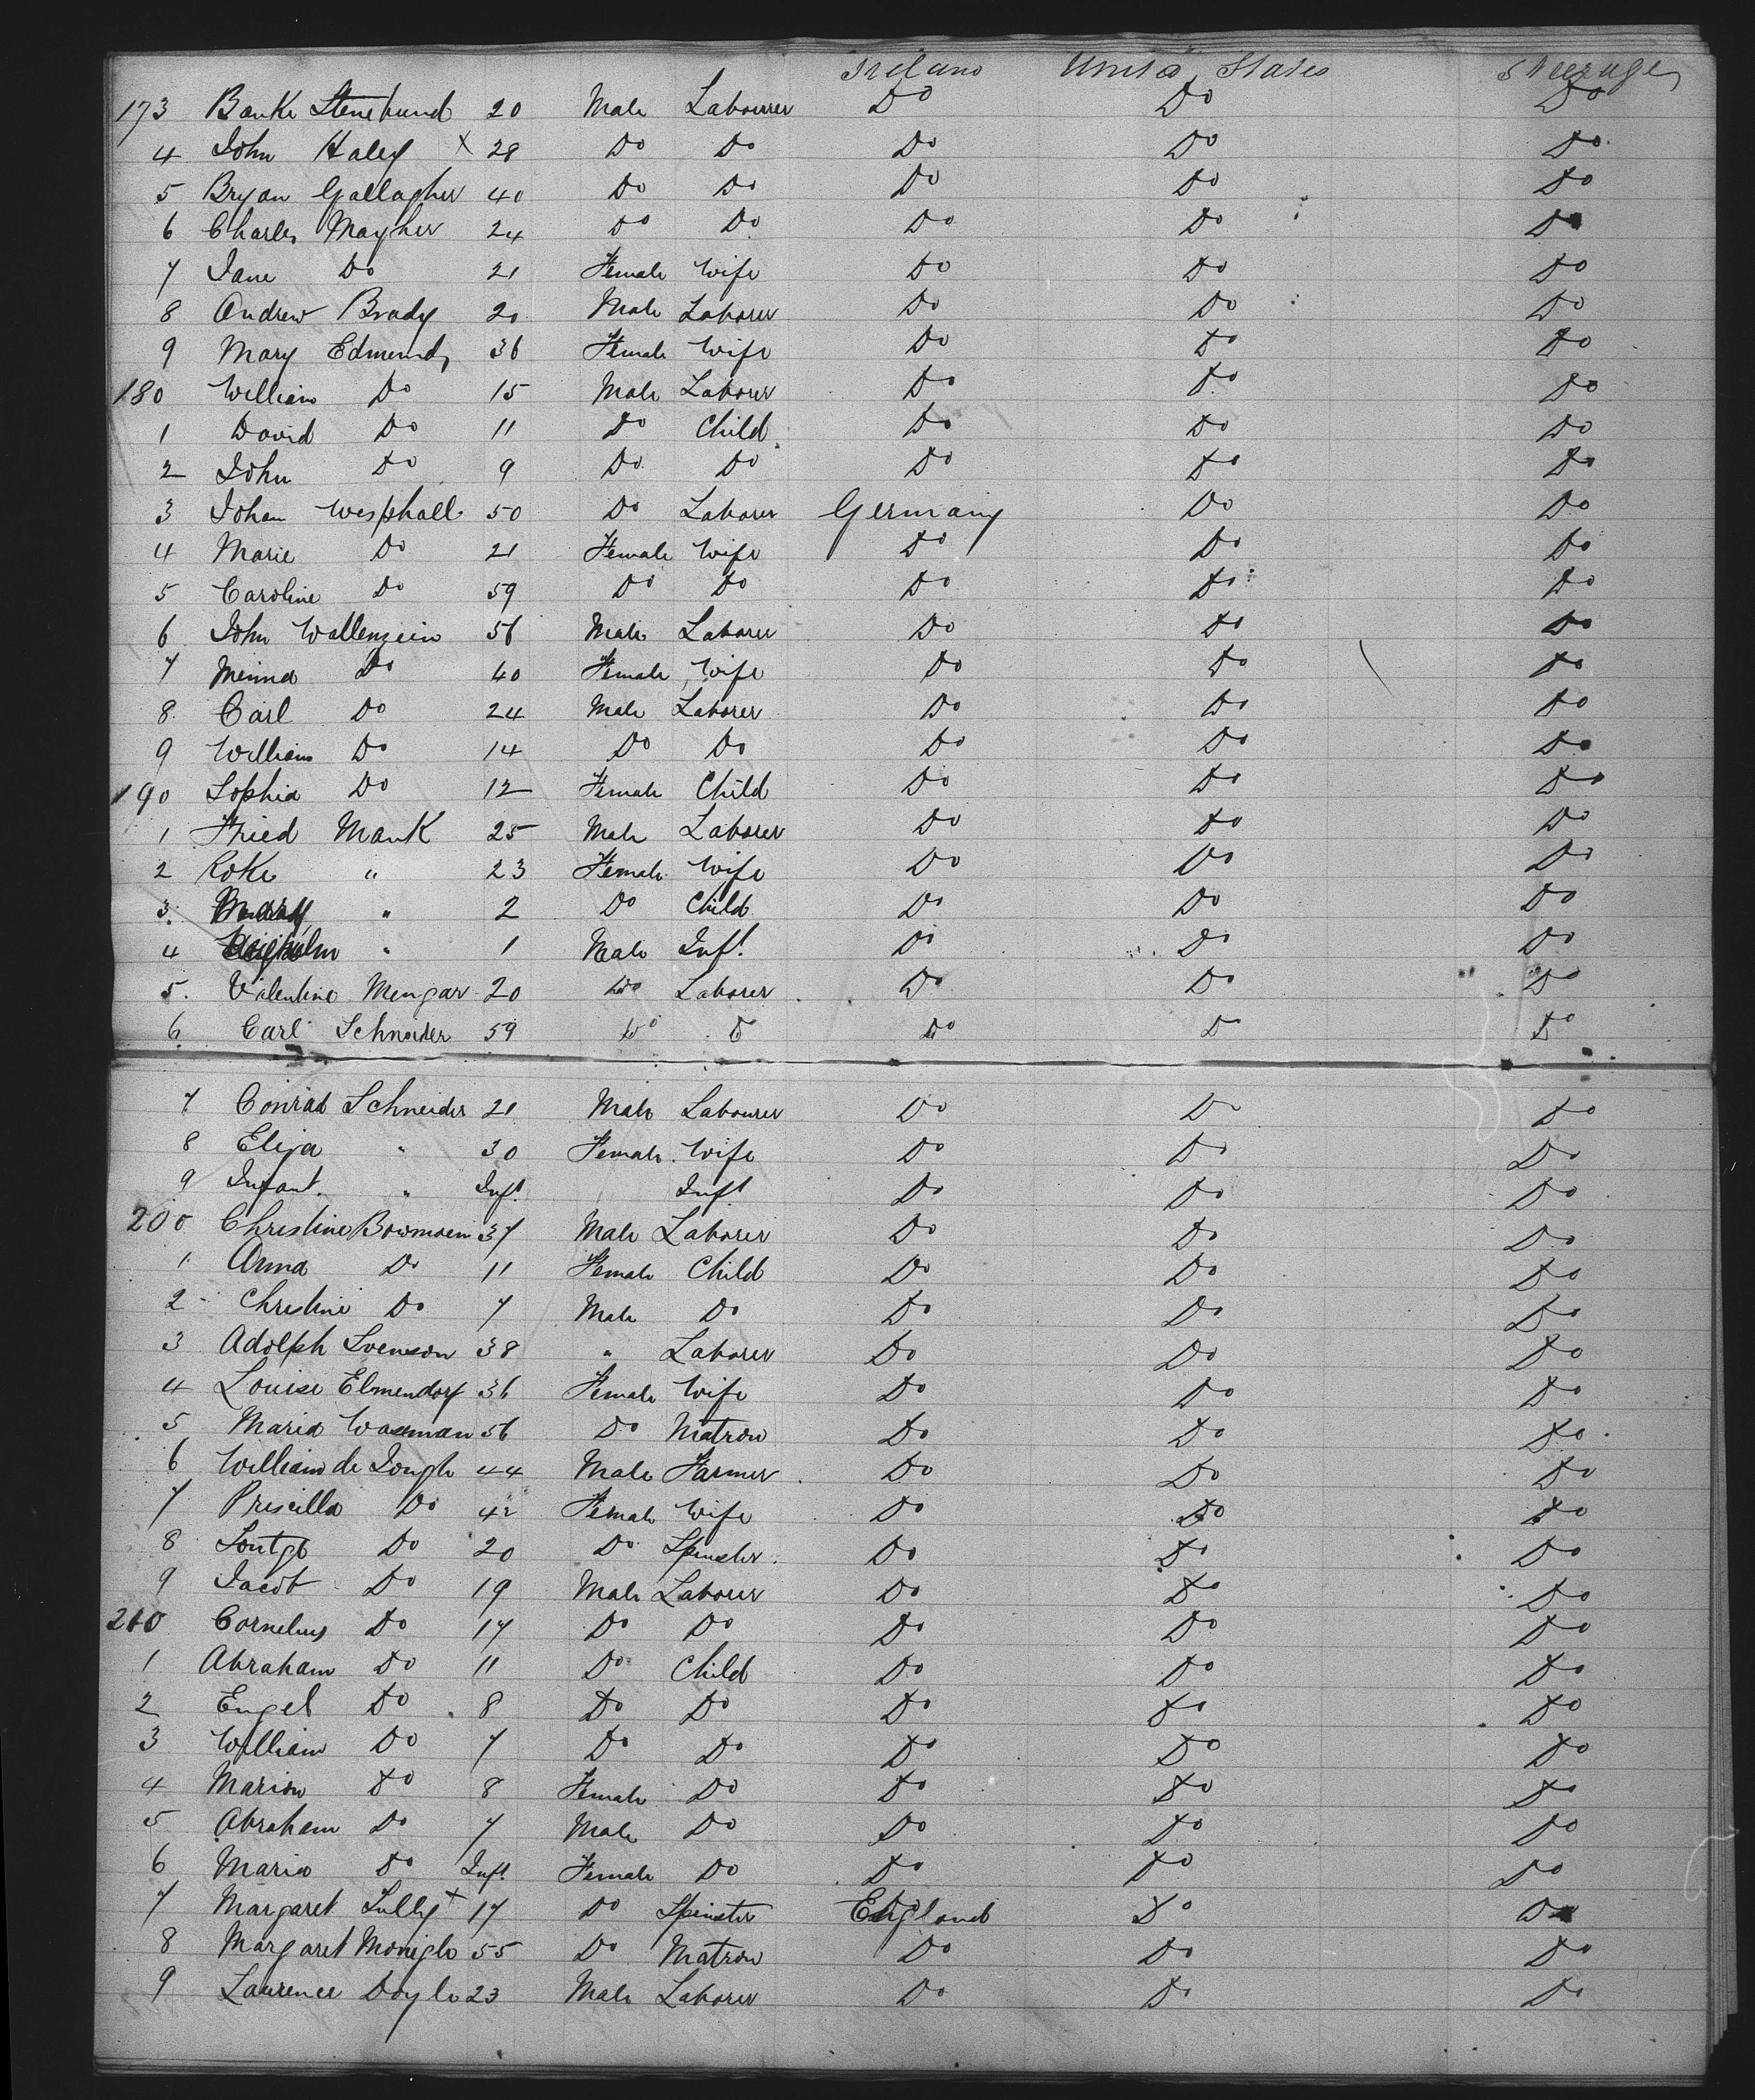 Ireland United States Steerage
173 Banke Stenebund 20 Male Labourer Do Do Do
4 John Haley x 28 Do Do Do Do Do
5 Bryan Gallagher 40 Do Do Do Do Do
6 Charles Maygher 24 Do Do Do Do Do
7 Jane Do 21 Female Wife Do Do Do
8 Andrew Brady 20 Male Laborer Do Do Do
9 Mary Edmunds 36 Female Wife Do Do Do
180 William Do 15 Male Laborer Do Do Do
1 David Do 11 Do Child Do Do Do
2 John Do 9 Do Do Do Do Do
3 Johan Wesphall 50 Do Laborer Germany Do Do
4 Marie Do 21 Female Wife Do Do Do
5 Caroline Do 59 Do Do Do Do Do
6 John Wallenzein 56 Male Laborer Do Do Do
7 Meinna Do 40 Female Wife Do Do Do
8 Carl Do 24 Male Laborer Do Do Do
9 William Do 14 Do Do Do Do Do
190 Sophia Do 12 Female Child Do Do Do
1 Fried Mank 25 Male Laborer Do Do Do
2 Roke " 23 Female Wife Do Do Do
3 " 2 Do Child Do Do Do
4 " 1 Male Inft. Do Do Do
5 Valentine Mengar 20 Do Laborer Do Do Do
6 Carl Schneider 59 Do D Do D Do
7 Conrad Schneider 21 Male Labourer Do Do Do
8 Eliza " 30 Female Wife Do Do Do
9 Infant " Inft Inft Do Do Do
200 Christine Bowmaen 37 Male Laborer Do Do Do
1 Anna Do 11 Female Child Do Do Do
2 Christine Do 7 Male Do Do Do Do
3 Adolph Svenson 38 " Laborer Do Do Do
4 Louise Elmendorf 36 Female Wife Do Do Do
5 Maria Waseman 56 Do Matron Do Do Do
6 William de Jough 44 Male Farmer Do Do Do
7 Priscilla Do 42 Female Wife Do Do Do
8 Do 20 Do Spinster Do Do Do
9 Jacob Do 19 Male Laborer Do Do Do
210 Cornelius Do 17 Do Do Do Do Do
1 Abraham Do 11 Do Child Do Do Do
2 Engel Do 8 Do Do Do Do Do
3 William Do 7 Do Do Do Do Do
4 Marion Do 8 Female Do Do Do Do
5 Abraham Do 7 Male Do Do Do Do
6 Maria Do Inft Female Do Do Do Do
7 Margaret Lully x 17 Do Spinster England Do Do
8 Margaret Monigle 55 Do Matron Do Do Do
9 Laurence Doyle 23 Male Laborer Do Do Do